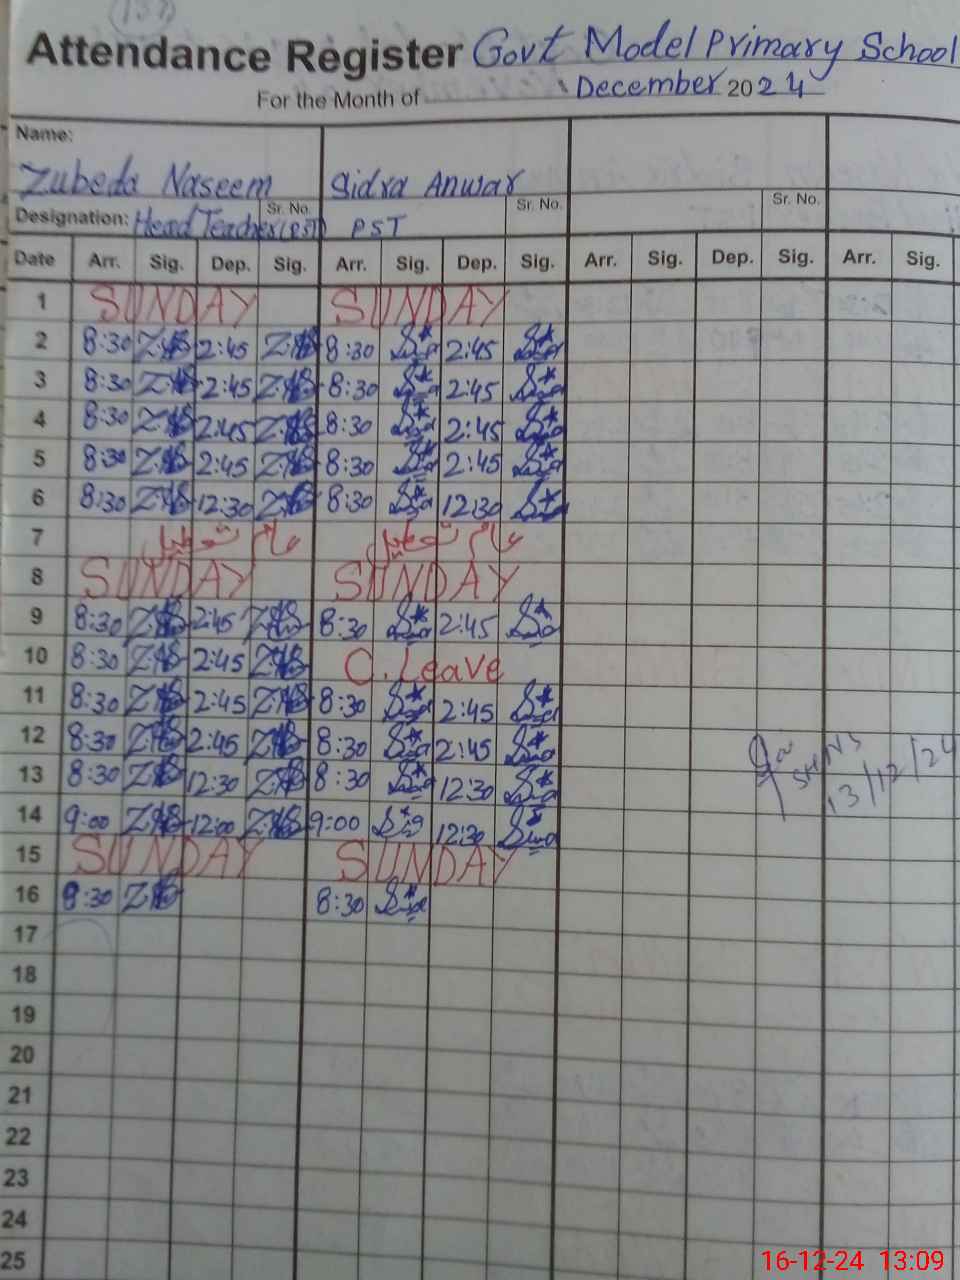 (137)
Attendance Register Govt Model Primary School
For the Month of December 2024
Name:
Zubeda Naseem Sidra Anwar
Sr. No. Sr. No. Sr. No.
Designation: Head Teacher (PST) PST
Date Arr. Sig. Dep. Sig. Arr. Sig. Dep. Sig. Arr. Sig. Dep. Sig. Arr. Sig.
1 SUNDAY SUNDAY
2 8:30 2:45 8:30 2:45
3 8:30 2:45 8:30 2:45
4 8:30 2:45 8:30 2:45
5 8:30 2:45 8:30 2:45
6 8:30 12:30 8:30 12:30
7 عام تعطیل عام تعطیل
8 SUNDAY SUNDAY
9 8:30 2:45 8:30 2:45
10 8:30 2:45 C.Leave
11 8:30 2:45 8:30 2:45
12 8:30 2:45 8:30 2:45
13 8:30 12:30 8:30 12:30
13/12/24
14 9:00 12:00 9:00 12:30
15 SUNDAY SUNDAY
16 8:30 8:30
17
18
19
20
21
22
23
24
25
16-12-24 13:09